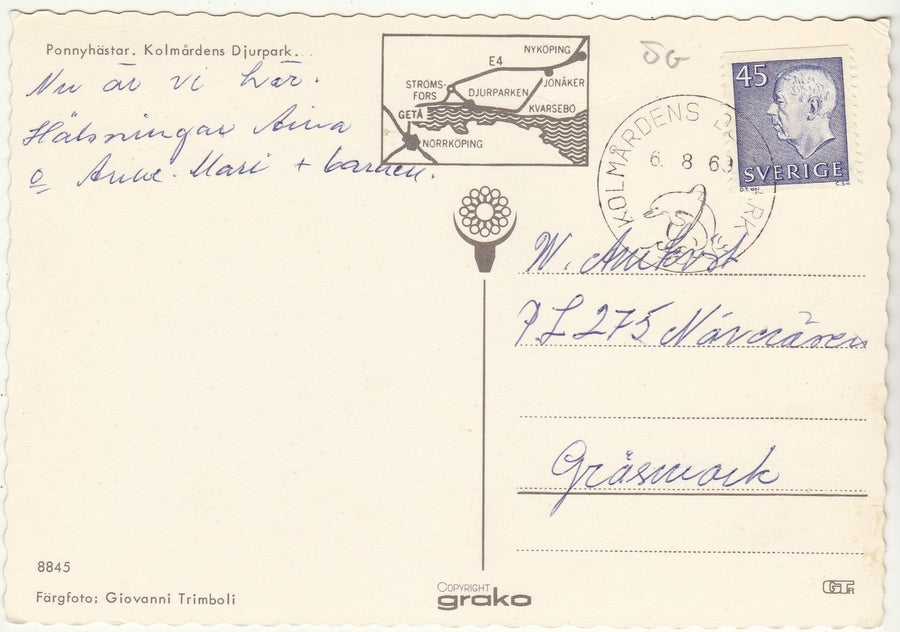 Ponnyhästar. Kolmårdens Djurpark.
Nu är vi här.
Hälsningar Aina
o Anne-Mari + barnen.
NYKÖPING
E4
JONÅKER
STRÖMS-
FORS
DJURPARKEN
KVARSEBO
GETÅ
NORRKÖPING
50-
45
SVERIGE
KOLMÅRDENS
6. 8 69
W. Almkvist
PL 275
Gräsmark
8845
Färgfoto: Giovanni Trimboli
COPYRIGHT
grako